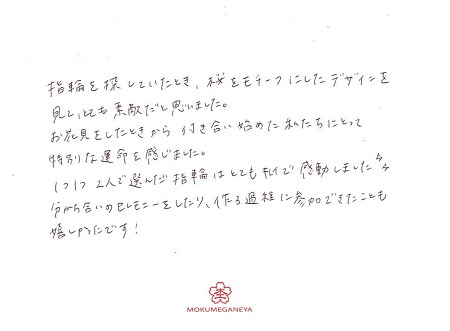 指輪を探していたとき、桜をモチーフにしたデザインを
見て、とても素敵だと思いました。
お花見をしたときから付き合い始めた私たちにとって
特別な運命を感じました。
1つ1つ2人で選んだ指輪はとてもキレイで感動しました
分かち合いのセレモニーをしたり、作る過程に参加できたことも
嬉しかったです!
MOKUMEGANEYA